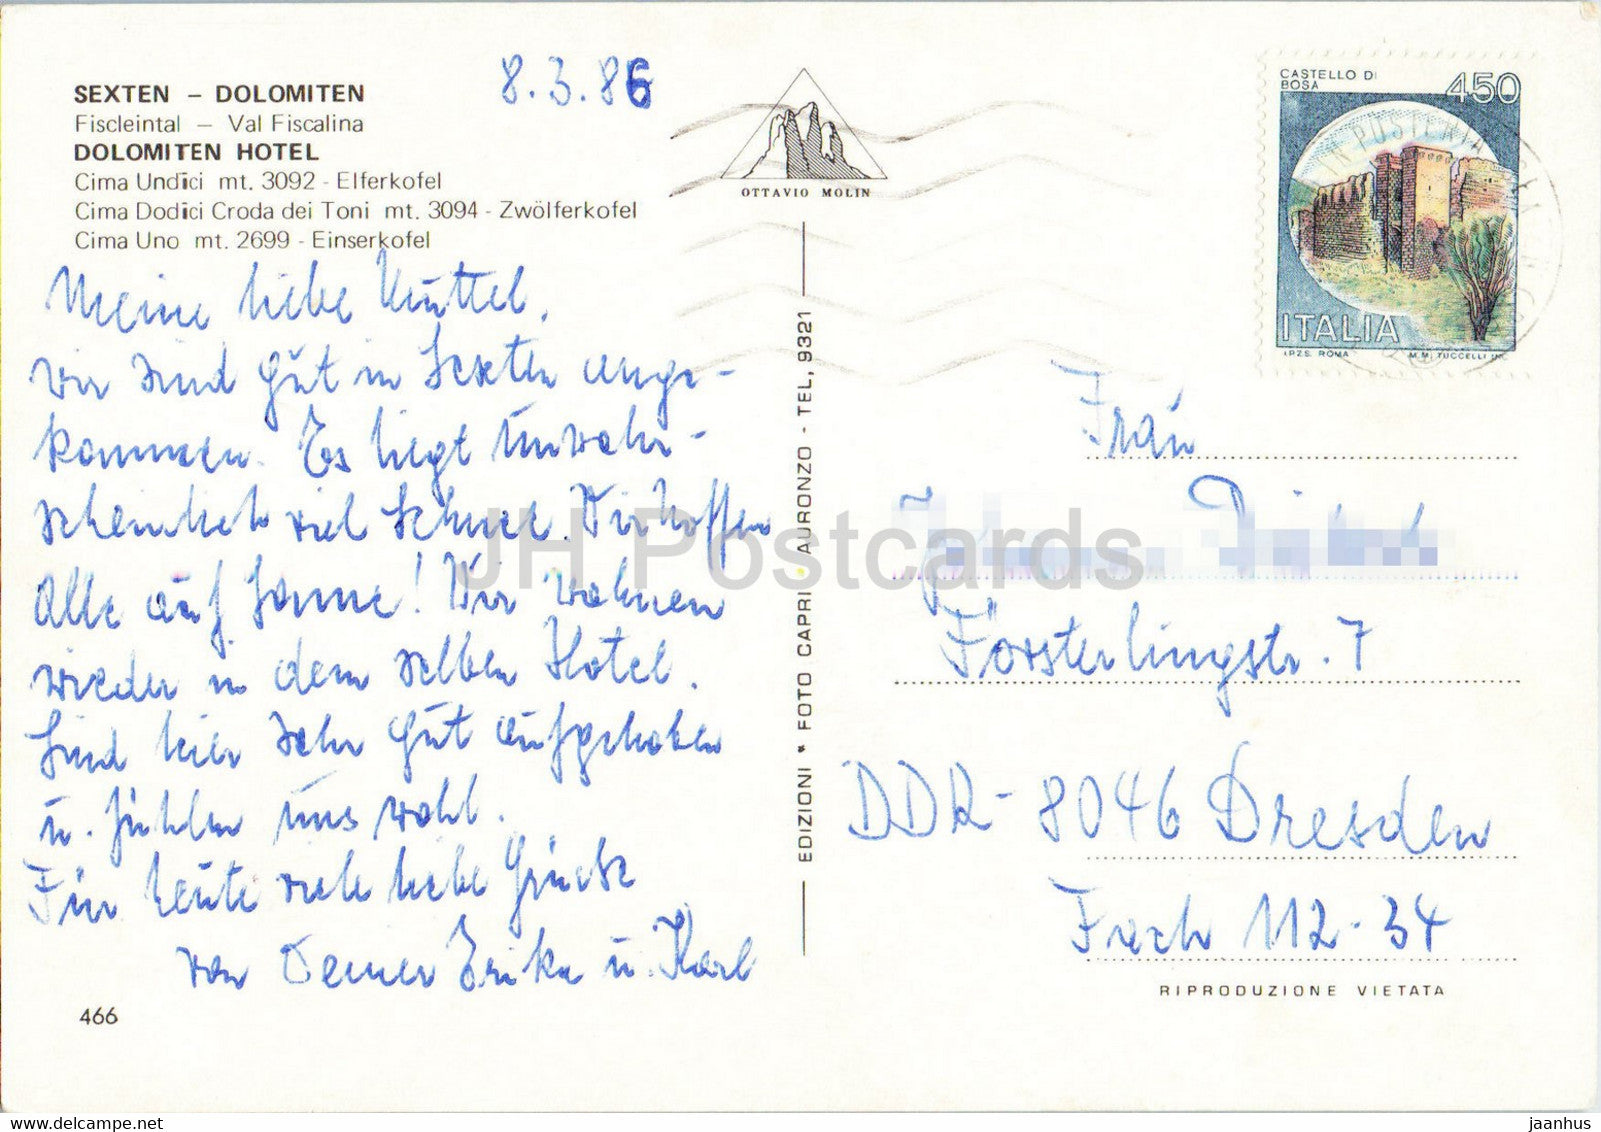 SEXTEN – DOLOMITEN
Fiscleintal – Val Fiscalina
DOLOMITEN HOTEL
Cima Undici mt. 3092 - Elferkofel
Cima Dodici Croda dei Toni mt. 3094 - Zwölferkofel
Cima Uno mt. 2699 - Einserkofel
8.3.86
OTTAVIO MOLIN
CASTELLO DI
BOSA
450
ITALIA
I.P.Z.S. ROMA M.M. TUCCELLI INC.
Meine liebe Küttel,
wir sind gut in Sexten ange-
kommen. Es liegt unwahr-
scheinlich viel Schnee. Wir hoffen
Alle auf Sonne! Wir wohnen
wieder in dem selben Hotel.
Sind hier sehr gut aufgehoben
u. fühlen uns wohl.
Für heute viele liebe Grüße
von Deiner Erika u. Karl
466
EDIZIONI * FOTO CAPRI AURONZO - TEL, 9321
Frau
Försterlingstr. 7
DDR-8046 Dresden
Fach 112-34
RIPRODUZIONE VIETATA
JH Postcards
jaanhus // www.delcampe.net